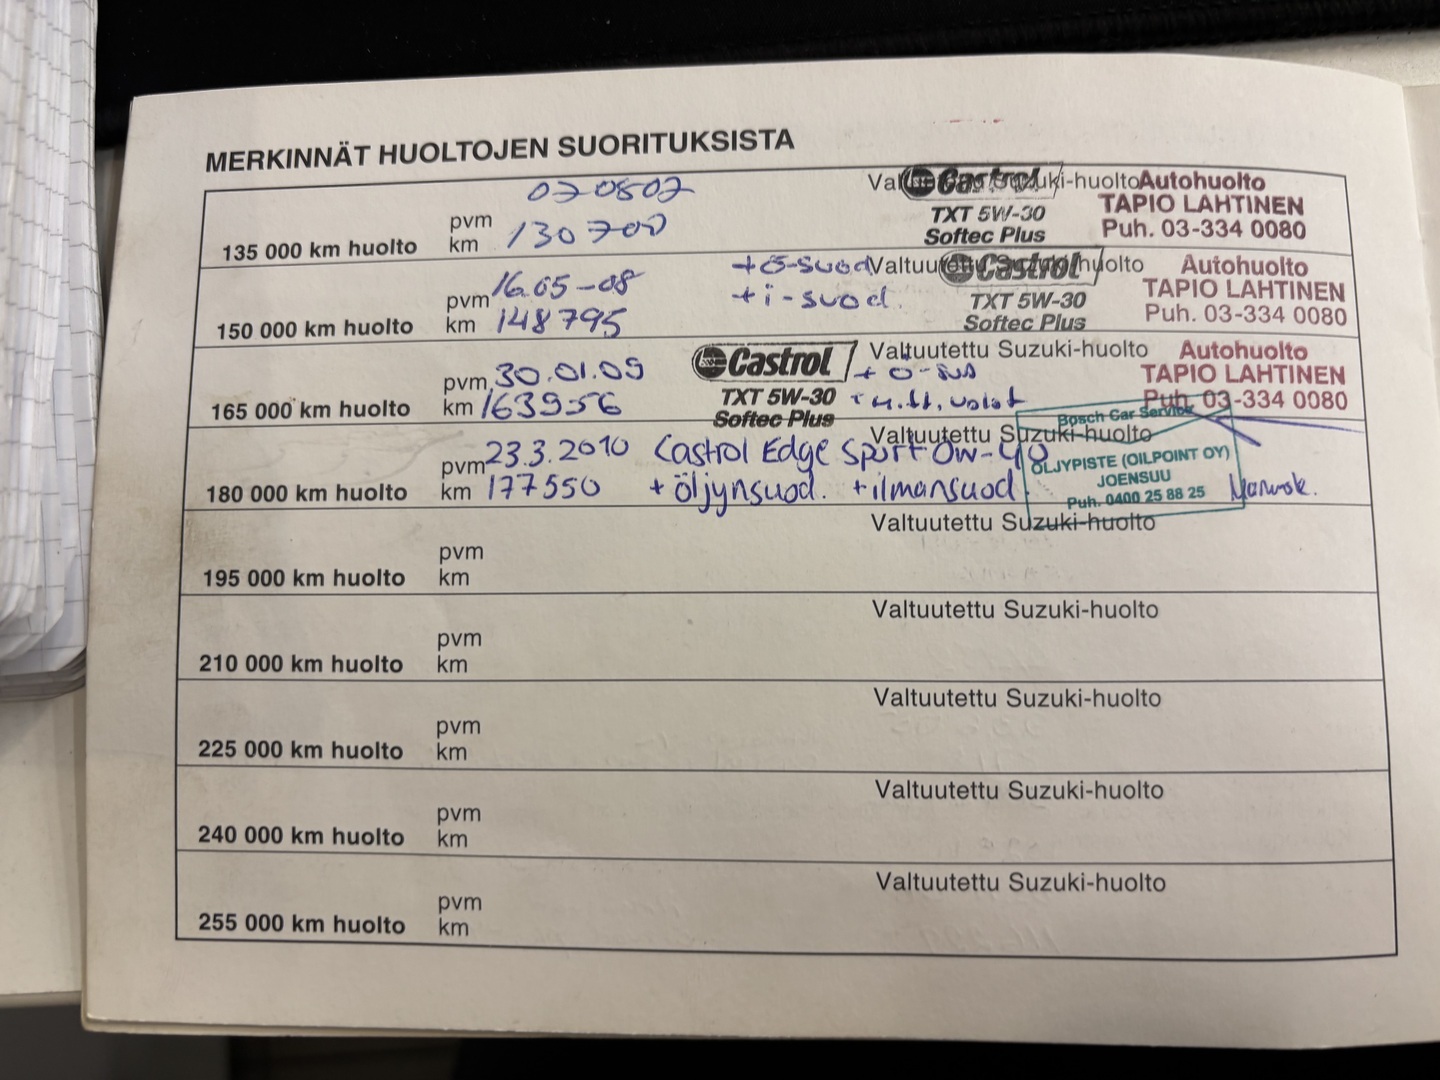 MERKINNÄT HUOLTOJEN SUORITUKSISTA
135 000 km huolto pvm 070807 km 130700 Valtuutettu Suzuki-huolto Castrol TXT 5W-30 Softec Plus Autohuolto TAPIO LAHTINEN Puh. 03-334 0080
150 000 km huolto pvm 16.05-08 km 148795 +ö-suod +i-suod Valtuutettu Suzuki-huolto Castrol TXT 5W-30 Softec Plus Autohuolto TAPIO LAHTINEN Puh. 03-334 0080
165 000 km huolto pvm 30.01.09 km 163956 Castrol TXT 5W-30 Softec Plus Valtuutettu Suzuki-huolto + ö-sus Autohuolto TAPIO LAHTINEN Puh. 03-334 0080
180 000 km huolto pvm 23.3.2010 km 177550 Castrol Edge Sport 0w-40 +öljynsuod. +ilmansuod. Valtuutettu Suzuki-huolto Bosch Car Service ÖLJYPISTE (OILPOINT OY) JOENSUU Puh. 0400 25 88 25
195 000 km huolto pvm km Valtuutettu Suzuki-huolto
210 000 km huolto pvm km Valtuutettu Suzuki-huolto
225 000 km huolto pvm km Valtuutettu Suzuki-huolto
240 000 km huolto pvm km Valtuutettu Suzuki-huolto
255 000 km huolto pvm km Valtuutettu Suzuki-huolto